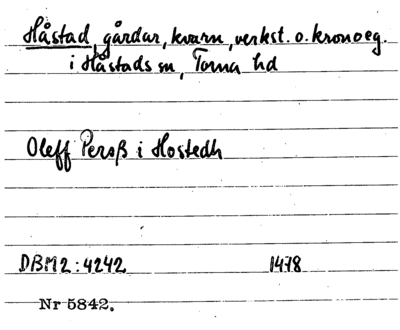 Håstad, gårdar, kvarn, verkst. o. kronoeg.
i Håstads sn, Torna hd
Oleff Persß i Hostedh
DBM2:4242 1478
Nr 5842.